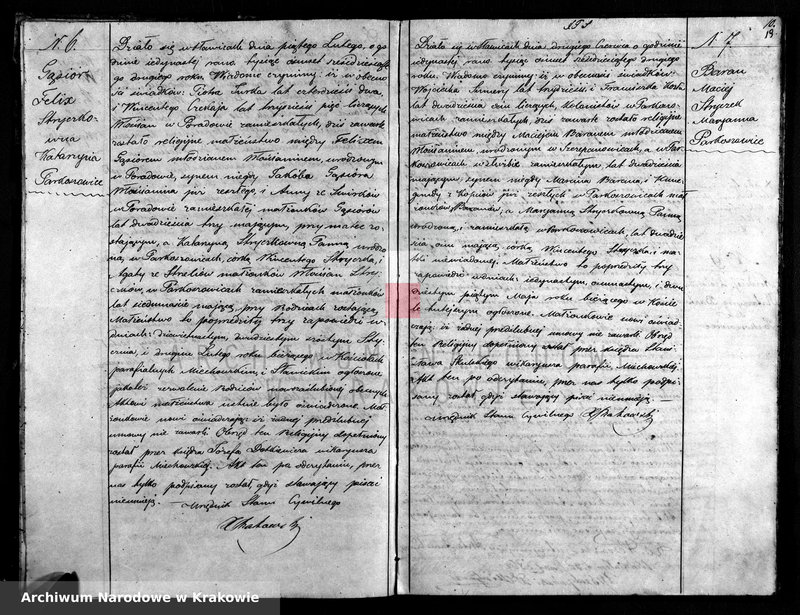 N. 6.
Gąsior
Felix
Stryczko-
wna
Katarzyna
Parkoszowice
Działo się w Sławicach dnia piątego Lutego, o go
dzinie jedynastej rano tysiąc ośmset sześćdziesiąte
go drugiego roku. Wiadomo czynimy iż w obecno
ści świadków Piotra lat czterdzieści dwa,
i Wincentego lat trzydzieści pięć liczących
Włościan w Poradowie zamieszkałych, dziś zawarte
zostało religijne małżeństwo między Felixem
Gąsiorem młodzianem Włościaninem urodzonym
w Poradowie, synem niegdy Jakóba Gąsiora
Włościanina już zeszłego, i Anny ze
w Poradowie zamieszkałej małżonków Gąsiorów
lat dwadzieścia trzy mającym, przy matce zo-
stającym, a Katarzyną Stryczkówną Panną urodzo
ną w Parkoszowicach, córką Wincentego Stryczka, i
Agaty ze małżonków Włościan Stry-
czków, w Parkoszowicach zamieszkałych małżonków
lat siedmnaście mającą, przy Rodzicach zostającą.
Małżeństwo to poprzedziły trzy zapowiedzi w
dniach: dziewiętnastym, dwudziestym szóstym Sty-
cznia, i drugim Lutego roku bieżącego w Kościołach
parafialnych Miechowskim, i Sławickim ogłoszone
jakoteż zezwolenie Rodziców nowozaślubionej obecnych
Aktowi małżeństwa ustnie było oświadczone. Mał
żonkowie nowi oświadczają iż żadnej przedślubnej
umowy nie zawarli. Obrzęd ten Religijny dopełniony
został przez księdza Józefa wikaryusza
parafii Miechowskiej. Akt ten po odczytaniu, przez
nas tylko podpisany został gdyż stawający pisać
nieumieją. — Urzędnik Stanu Cywilnego
10.
19
N. 7
Baran
Maciej
Stryczek
Maryanna
Parkoszowice
Działo się w Sławicach dnia drugiego Czerwca o godzinie
jedynastej rano tysiąc ośmset sześćdziesiątego drugiego
roku. Wiadomo czynimy iż w obecności świadków
Wojciecha lat trzydzieści i Franciszka
lat dwadzieścia liczących, Kolonistów w Parkoszo-
wicach zamieszkałych, dziś zawarte zostało religijne
małżeństwo między Maciejem Baranem młodzianem
Włościaninem urodzonym w Szczepanowicach, a w Par
koszowicach w służbie zamieszkałym lat dwadzieścia
mającym, synem niegdy Marcina Barana i Kune-
gundy z już zeszłych w Parkoszowicach mał
żonków Baranów, a Maryanną Stryczkówną Panną
urodzoną, i zamieszkałą w Parkoszowicach, lat dwadzie
ścia mającą, córką Wincentego Stryczka, i ma-
tki niewiadomej. Małżeństwo to poprzedziły trzy
zapowiedzi w dniach: jedynastym, ośmnastym, i dwu
dziestym piątym Maja roku bieżącego w Koście
le tutejszym ogłoszone. Małżonkowie nowi oświad
czają iż żadnej przedślubnej umowy nie zawarli. Obrzęd
ten Religijny dopełniony został przez księdza Stani
sława wikaryusza parafii Miechowskiej.
Akt ten po odczytaniu, przez nas tylko podpi-
sany został gdyż stawający pisać nieumieją. —
Urzędnik Stanu Cywilnego
Archiwum Narodowe w Krakowie